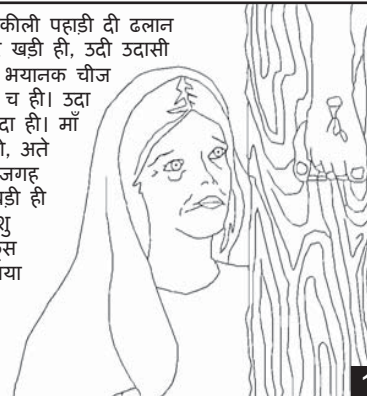 कीली पहाड़ी दी ढलान
खड़ी ही, उदी उदासी
भयानक चीज
च ही। उदा
दा ही। माँ
, अते
जगह
ड़ी ही
शु
स
या